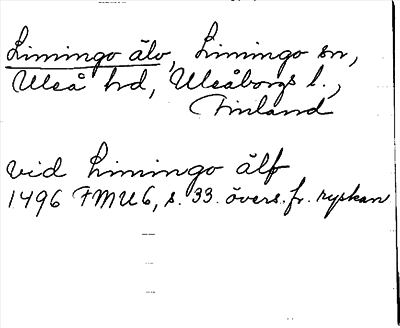 Limingo älv, Limingo sn,
Uleå hd, Uleåborgs l.,
Finland
vid Limingo älf
1496 FMU6, s. 33. övers. fr. ryskan